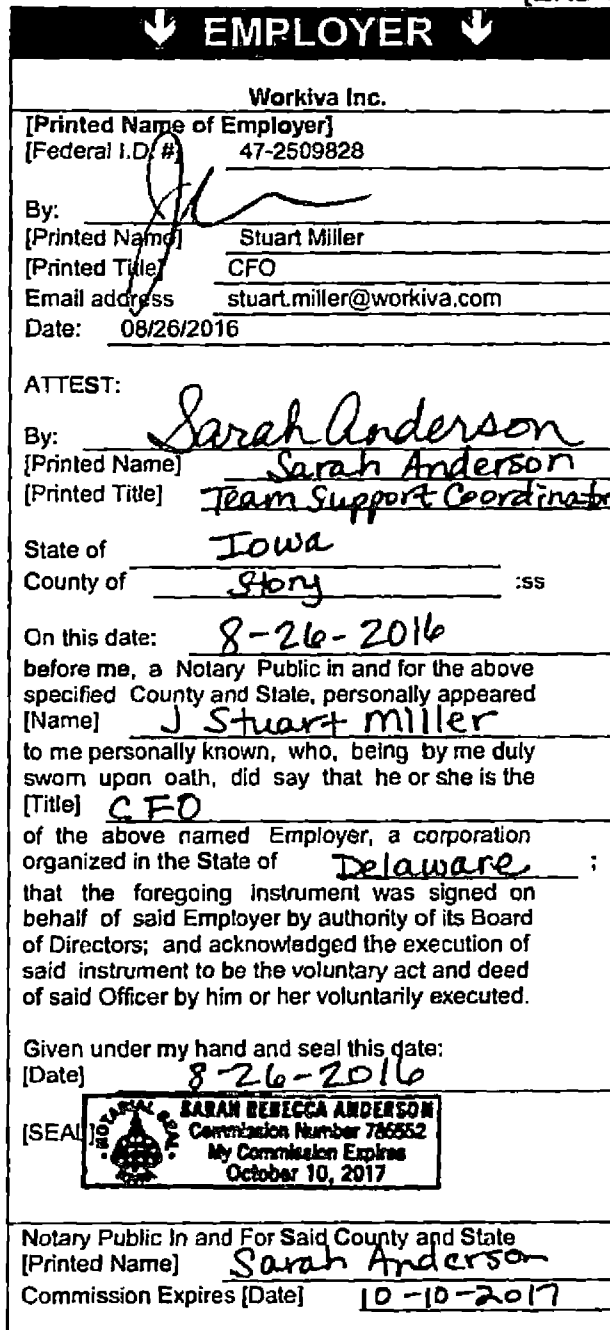 EMPLOYER
Workiva Inc.
[Printed Name of Employer]
[Federal I.D. #] 47-2509828
By:
[Printed Name] Stuart Miller
[Printed Title] CFO
Email address stuart.miller@workiva.com
Date: 08/26/2016
ATTEST:
By: Sarah Anderson
[Printed Name] Sarah Anderson
[Printed Title] Team Support Coordinator
State of Iowa
County of Story :ss
On this date: 8-26-2016
before me, a Notary Public in and for the above
specified County and State, personally appeared
[Name] J Stuart Miller
to me personally known, who, being by me duly
sworn upon oath, did say that he or she is the
[Title] CFO
of the above named Employer, a corporation
organized in the State of Delaware ;
that the foregoing instrument was signed on
behalf of said Employer by authority of its Board
of Directors; and acknowledged the execution of
said instrument to be the voluntary act and deed
of said Officer by him or her voluntarily executed.
Given under my hand and seal this date:
[Date] 8-26-2016
[SEAL]
NOTARIAL SEAL
SARAH REBECCA ANDERSON
Commission Number 786552
My Commission Expires
October 10, 2017
Notary Public In and For Said County and State
[Printed Name] Sarah Anderson
Commission Expires [Date] 10-10-2017